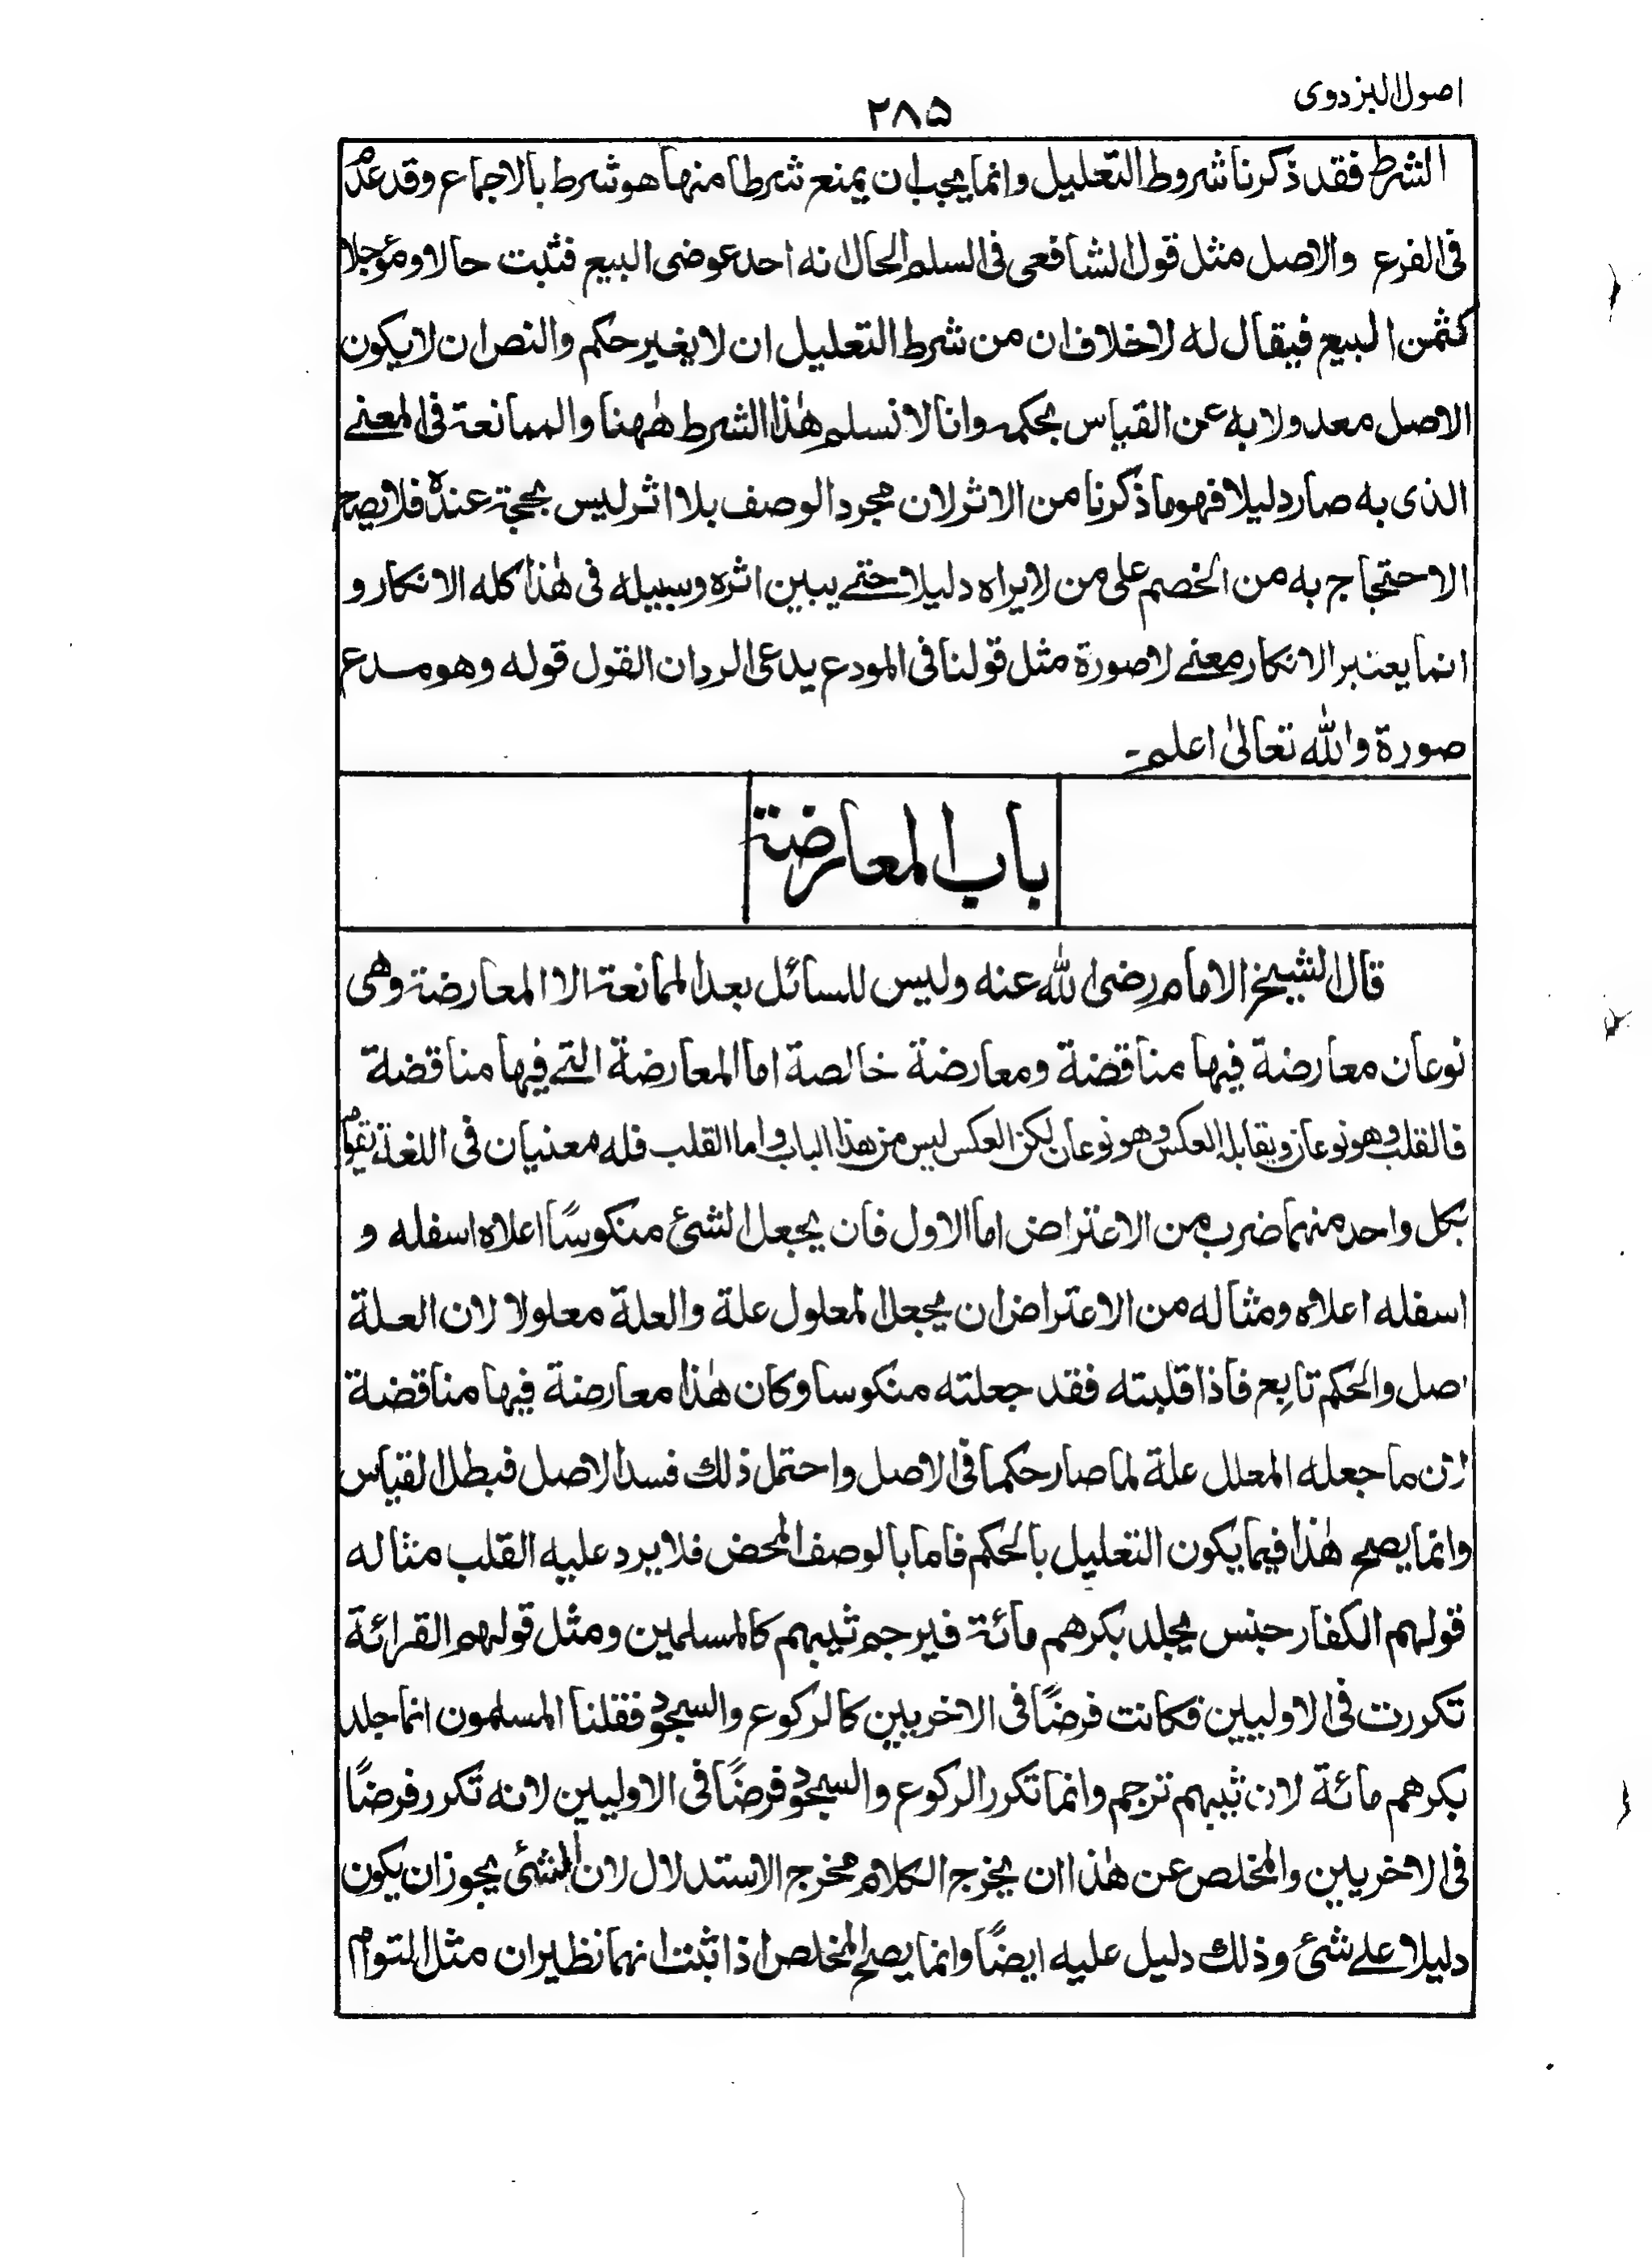 اصول البزدوی
۲۸۵
الشرط فقد ذكرنا شروط التعليل وانما يجب ان يمنع شرطا منها هو شرط بالاجماع وقد عدم
فى الفرع والاصل مثل قول الشافعى فى السلم الحال انه احد عوضى البيع فثبت حالا ومؤجلا
كثمن البيع فيقال له لا خلاف ان من شرط التعليل ان لا يغير حكم والنص ان لا يكون
الاصل معدولا به عن القياس بحكمه وانا لا نسلم هٰذا الشرط هٰهنا والممانعة فى المعنے
الذى به صار دليلا فهو ما ذكرنا من الاثر لان مجرد الوصف بلا اثر ليس بحجة عنده فلا يصح
الاحتجاج به من الخصم على من لا يراه دليلا حتے يبين اثره وسبيله فى هٰذا كله الانكار و
انما يعتبر الانكار معنے لا صورة مثل قولنا فى المودع يدعى الرد ان القول قوله وهو مدع
صورة والله تعالىٰ اعلم۔
باب المعارضة
قال الشيخ الامام رضى الله عنه وليس للسائل بعد الممانعة الا المعارضة وهى
نوعان معارضة فيها مناقضة ومعارضة خالصة اما المعارضة التے فيها مناقضة
فالقلب وهو نوعان ويقابله العكس وهو نوعان لكن العكس ليس من هذا الباب واما القلب فله معنيان فى اللغة يقوم
بكل واحد منهما ضرب من الاعتراض اما الاول فان يجعل الشئ منكوسًا اعلاه اسفله و
اسفله اعلاه ومثاله من الاعتراض ان يجعل المعلول علة والعلة معلولا لان العلة
اصل والحكم تابع فاذا قلبته فقد جعلته منكوسا وكان هٰذا معارضة فيها مناقضة
لان ما جعله المعلل علة لما صار حكما فى الاصل واحتمل ذلك فسد الاصل فبطل القياس
وانما يصح هٰذا فيما يكون التعليل بالحكم فاما بالوصف المحض فلا يرد عليه القلب مثاله
قولهم الكفار جنس يجلد بكرهم مائة فيرجم ثيبهم كالمسلمين ومثل قولهم القرائة
تكررت فى الاوليين فكانت فرضًا فى الاخريين كالركوع والسجود فقلنا المسلمون انما جلد
بكرهم مائة لان ثيبهم ترجم وانما تكرر الركوع والسجود فرضًا فى الاوليين لانه تكرر فرضًا
فى الاخريين والمخلص عن هٰذا ان يخرج الكلام مخرج الاستدلال لان الشئ يجوز ان يكون
دليلا علے شئ وذلك دليل عليه ايضًا وانما يصح المخلص اذا ثبت انهما نظيران مثل التوام